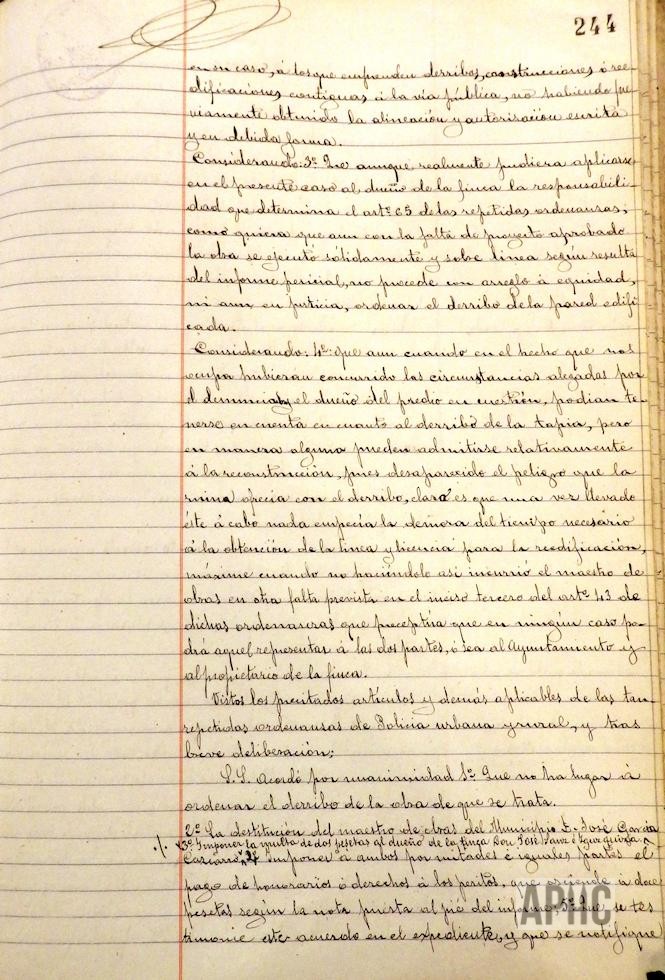 244
en su caso, á los que emprenden derribos, construcciones ó ree-
dificaciones contiguas á la vía pública, no habiendo pre-
viamente obtenido la alineación y autorización escrita
y en debida forma.
Considerando: 3º Que aunque realmente pudiera aplicarse
en el presente caso al dueño de la finca la responsabili-
dad que determina el artº 65 de las repetidas ordenanzas,
como quiera que aun con la falta de proyecto aprobado
la obra se ejecutó sólidamente y sobre linea según resulta
del informe pericial, no procede con arreglo á equidad,
ni aun en justicia, ordenar el derribo de la pared edifi
cada.
Considerando: 4º: que aun cuando en el hecho que nos
ocupa hubieran concurrido las circunstancias alegadas por
el denunciado y el dueño del predio en cuestión, podian te-
nerse en cuenta en cuanto al derribo de la tapia, pero
en manera alguna pueden admitirse relativamente
á la reconstrucción, pues desaparecido el peligro que la
ruina ofrecia con el derribo, claro es que una vez llevado
éste á cabo nada empecía la demora del tiempo necesario
á la obtención de la linea y licencia para la reedificación,
máxime cuando no haciéndolo asi incurrió el maestro de
obras en otra falta prevista en el inciso tercero del artº 43 de
dichas ordenanzas que preceptúa que en ningun caso po-
drá aquel representar á las dos partes, ó sea al Ayuntamiento y
al propietario de la finca.
Vistos los precitados artículos y demás aplicables de las tan
repetidas ordenanzas de Policia urbana y rural, y tras
breve deliberación;
S.S. acordó por unanimidad 1º Que no ha lugar á
ordenar el derribo de la obra de que se trata.
2º La destitución del maestro de obras del Municipio D. José García
3º Imponer la multa de dos pesetas al dueño de la finca Don José Sanz
4º Imponer á ambos por mitades é iguales partes el
pago de honorarios ó derechos á los peritos, que asciende á doce
pesetas según la nota puesta al pié del informe; 5º Que se tes
timonie este acuerdo en el expediente, y que se notifique
APHC